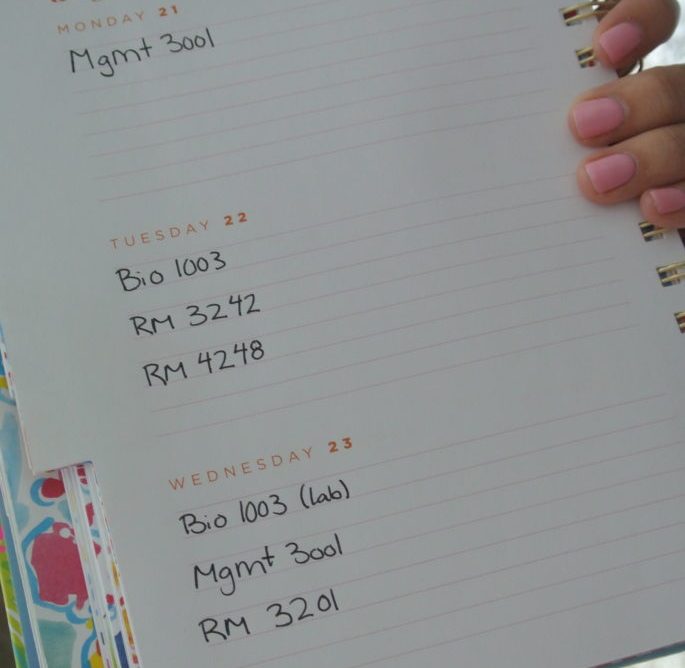 MONDAY 21
Mgmt 3001
TUESDAY 22
Bio 1003
RM 3242
RM 4248
WEDNESDAY 23
Bio 1003 (lab)
Mgmt 3001
RM 3201